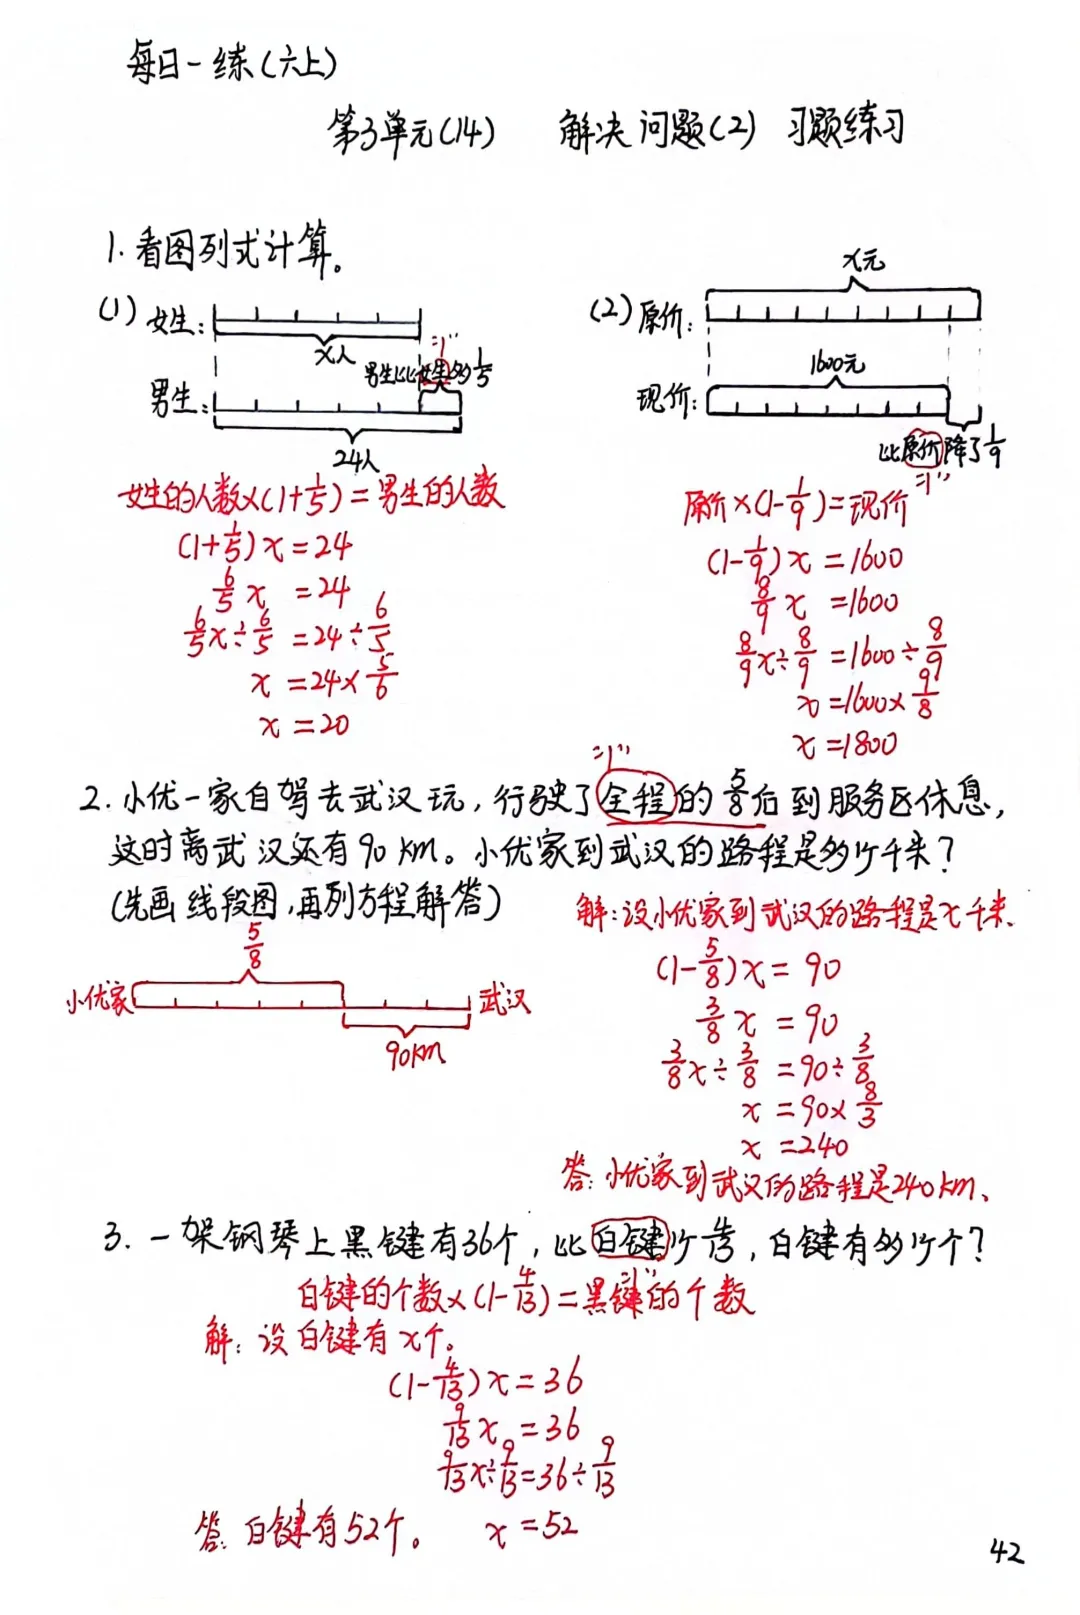 每日一练(六上)
第3单元(14) 解决问题(2) 习题练习
1.看图列式计算。
(1) 女生:
x人
="1"
男生比女生多1/5
男生:
24人
女生的人数×(1+1/5)=男生的人数
(1+1/5)x=24
6/5x=24
6/5x÷6/5=24÷6/5
x=24×5/6
x=20
(2) 原价:
x元
1600元
现价:
比原价降了1/9
="1"
原价×(1-1/9)=现价
(1-1/9)x=1600
8/9x=1600
8/9x÷8/9=1600÷8/9
x=1600×9/8
x=1800
="1"
2.小优一家自驾去武汉玩,行驶了全程的5/8后到服务区休息,
这时离武汉还有90km。小优家到武汉的路程是多少千米?
(先画线段图,再列方程解答)
5/8
小优家 武汉
90km
解:设小优家到武汉的路程是x千米.
(1-5/8)x=90
3/8x=90
3/8x÷3/8=90÷3/8
x=90×8/3
x=240
答:小优家到武汉的路程是240km.
3.一架钢琴上黑键有36个,比白键少4/13,白键有多少个?
="1"
白键的个数×(1-4/13)=黑键的个数
解:设白键有x个。
(1-4/13)x=36
9/13x=36
9/13x÷9/13=36÷9/13
x=52
答:白键有52个。
42